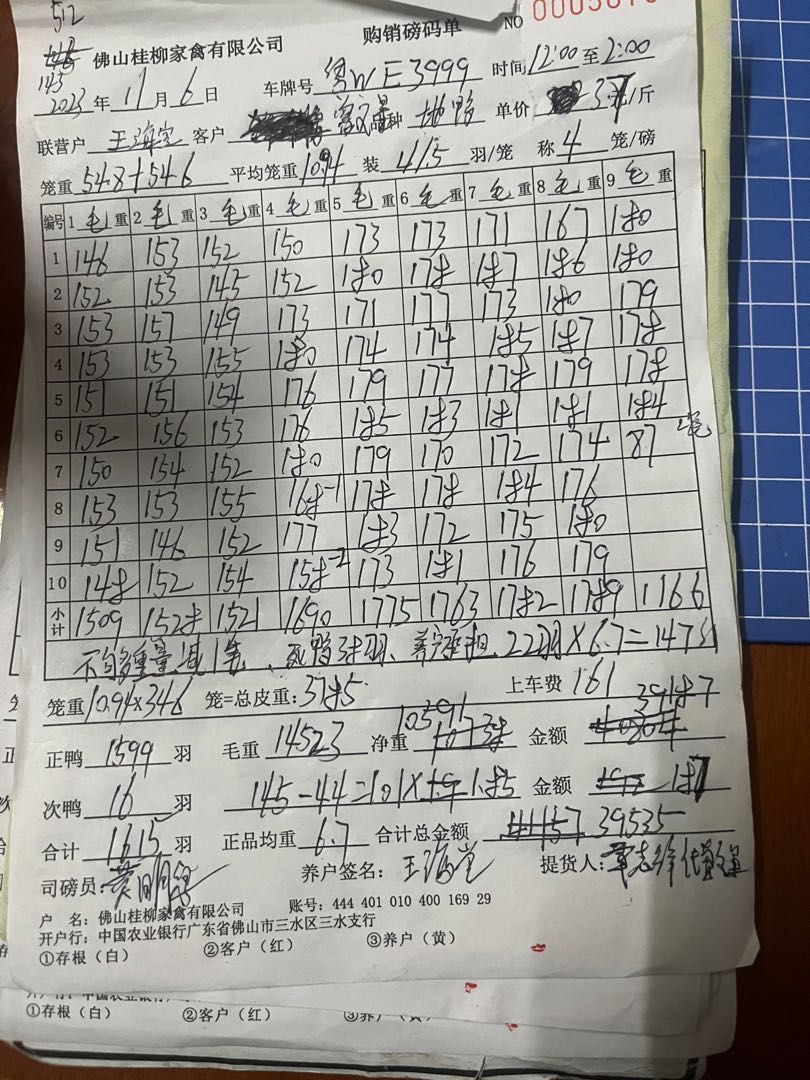 512
143
佛山桂柳家禽有限公司 购销磅码单 NO
2023年11月6日 车牌号 粤WE3999 时间 12:00 至 2:00
联营户 王海 客户 品种 单价 3.7元/斤
笼重 548+546 平均笼重 10.94 装 4/15 羽/笼 称 4 笼/磅
编号 1毛重 2毛重 3毛重 4毛重 5毛重 6毛重 7毛重 8毛重 9毛重
1 146 153 152 150 173 173 171 167 180
2 152 153 145 152 180 178 187 186 180
3 153 157 149 173 171 177 173 180 179
4 153 153 155 180 174 174 185 187 178
5 151 151 154 176 179 177 178 179 178
6 152 156 153 176 185 183 181 181 184
7 150 154 152 180 179 170 172 174 87
8 153 153 155 168-1 178 178 184 176
9 151 146 152 177 183 172 175 180
10 148 152 154 158-2 173 181 176 179
小计 1509 1528 1521 1690 1775 1763 1782 1789 1166
死鸭 羽、养户 22羽×6.7=147斤
笼重 10.94×346 笼=总皮重: 3785 上车费 161
39187
正鸭 1599 羽 毛重 14523 净重 10591 金额
次鸭 16 羽 145-44=101× 1.85 金额 187
合计 1615 羽 正品均重 6.7 合计总金额 39535
司磅员: 养户签名: 王海 提货人:
户 名: 佛山桂柳家禽有限公司 账号: 444 401 010 400 169 29
开户行: 中国农业银行广东省佛山市三水区三水支行
①存根(白) ②客户(红) ③养户(黄)
①存根(白) ②客户(红)